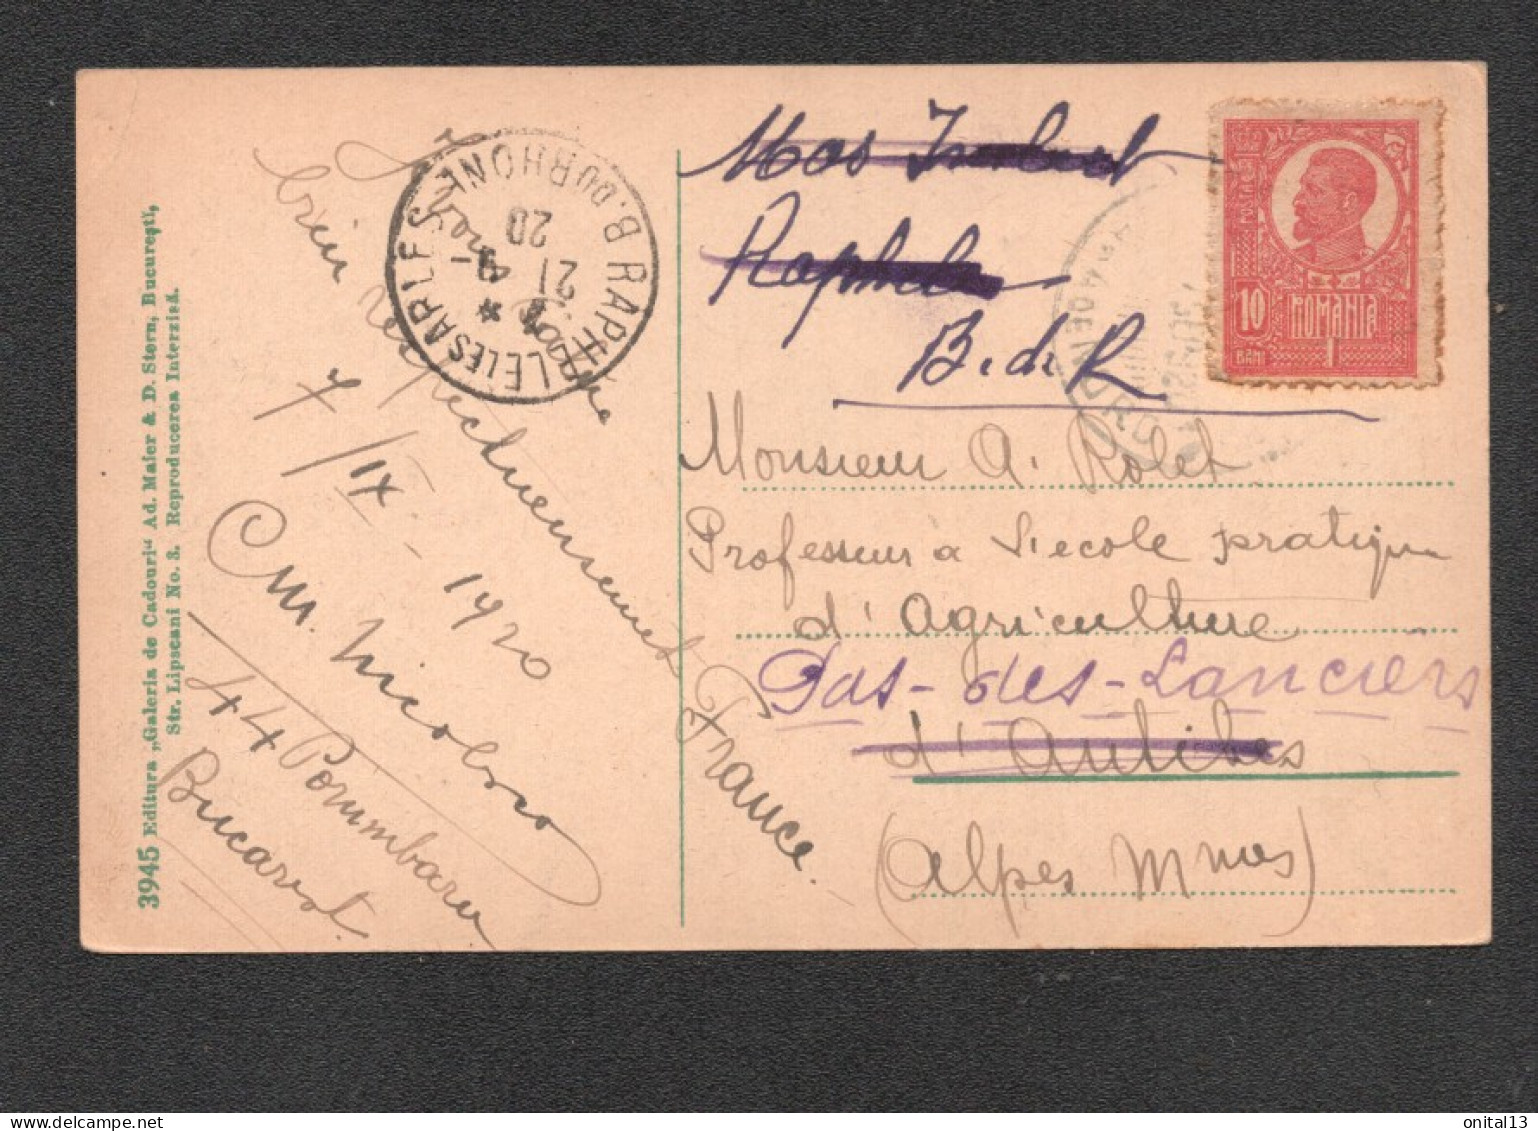 3945 Editura „Galeria de Cadouri“ Ad. Maier & D. Stern, București,
Str. Lipscani No. 3. Reproducerea Interzisă.
bien respectueusement
7/IX - 1920
Cm. Nicolesco
44 Porumbaru
Bucarest.
RAPHELE LES ARLES
B. DU RHONE
21
20
Mas
Raphele
B. d. R
POSTA
10
BANI
ROMANIA
1
Monsieur A. Rolet
Professeur a l'ecole pratique
d'Agriculture
Pas-des-Lanciers
d'Antibes
(Alpes Mmes)
France.
onital13